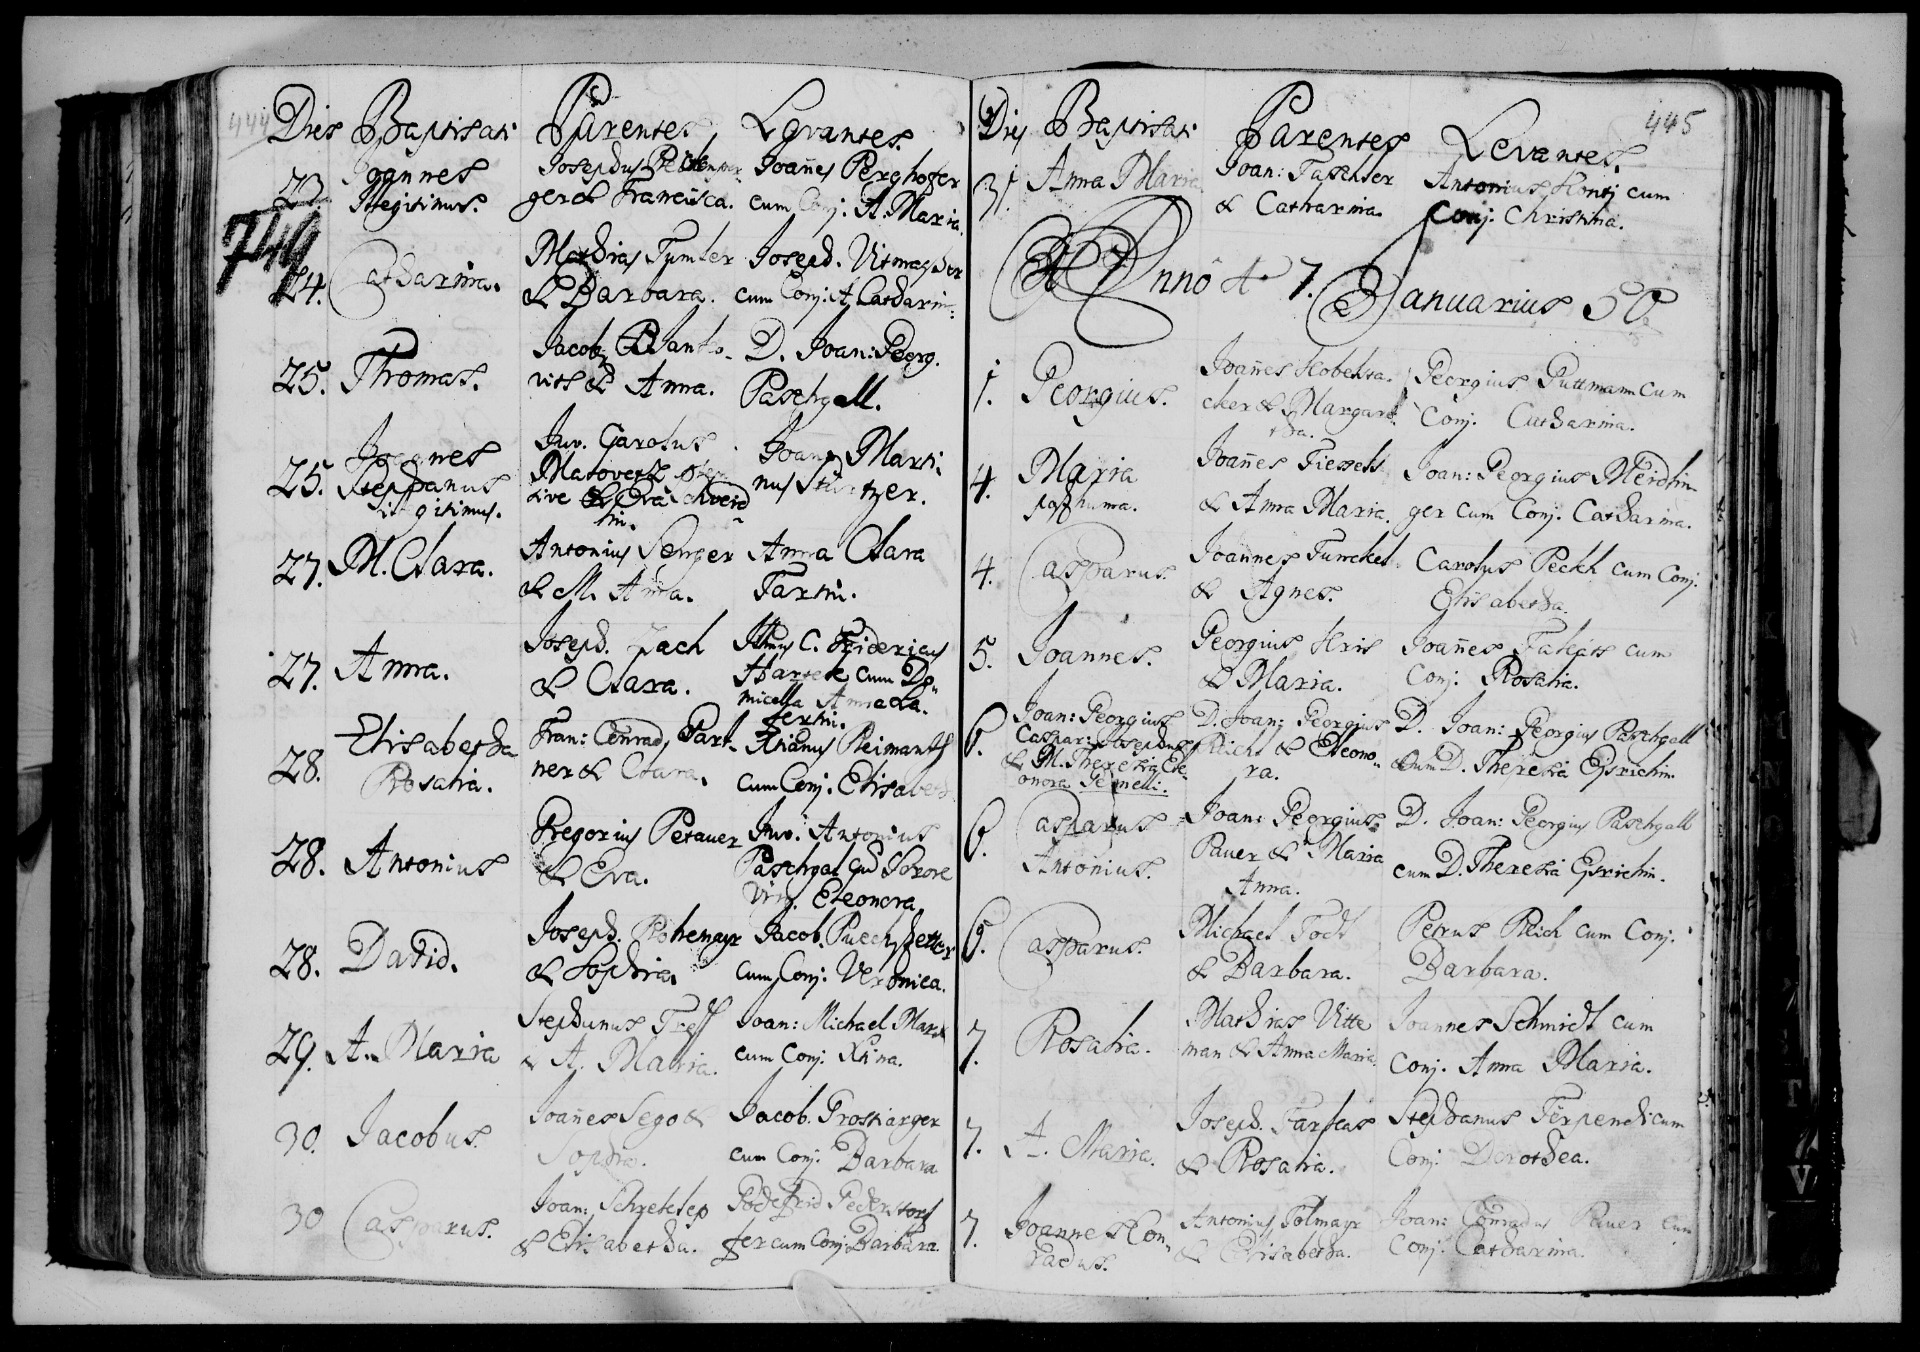 444
Dies Baptisati Parentes Levantes.
23. Joannes Illegitimus.
Josephus
ger & Francisca.
Joañes Perghofer
cum Conj: A. Maria.
749
24. Catharina.
Mathias Tumler
& Barbara.
Joseph. Vitmayher
cum Conj: A. Catharin:
25. Thomas.
Jacob
vits & Anna.
D. Joan: Georg.
Paschgall.
25. Joannes
Stephanus
illegitimus.
Juv. Carolus
Matoverz
sive & Eva
tin.
Joan Marti
nus Stürtzer.
27. M. Clara.
Antonius Senger
& M. Anna.
Anna Clara
Fartin.
27. Anna.
Joseph. Zach
& Clara.
C. Fridericus
Hartek cum Do-
micella Anna Ca.
fertin.
28. Elisabetha
Rosalia.
Fran: Conrad, Part-
ner & Clara.
Xtianus Reimanth
cum Conj: Elisabeth
28. Antonius
Gregorius Petauer
& Eva.
Juv: Antonius
Paschgal cū Sorore
Virg. Eleonora.
28. David.
Joseph. Rohrmayr
& Sophia.
Jacob. Puechstetter
cum Conj: Veronica.
29. A. Maria
Stephanus Tress
& A. Maria.
Joan: Michael Mark
cum Conj: Xtina.
30. Jacobus.
Joañes Sego &
Sophia.
Jacob. Proskarger
cum Conj: Barbara
30 Casparus.
Joan: Schretelsep
& Elisabetha.
Godefrid Pederstorf
fer cum Conj: Barbara.
445
Dies Baptisati Parentes Levantes.
31. Anna Maria.
Joan: Taschler
& Catharina.
Antonius Hontj cum
Conj. Christina.
Anno 17. Januarius 50
1. Georgius.
Joañes Hobelsa-
cker & Margare-
tha.
Georgius Guttmann cum
Conj. Catharina.
4. Maria
posthuma.
Joañes Fiessels
& Anna Maria.
Joan: Georgius Neidlin-
ger cum Conj. Catharina.
4. Casparus.
Joannes Funckel
& Agnes.
Carolus Peckh cum Conj.
Elisabetha.
5. Joannes.
Georgius Kris
& Maria.
Joañes Takats cum
Conj. Rosalia.
6. Joan: Georgius
Caspar: Josephus
& M. Theresia Ele-
onora Gemelli.
D. Joan: Georgius
Richt & Eleono-
ra.
D. Joan: Georgius Paschgall
cum D. Theresia Gsrichin.
6. Casparus
Antonius.
Joan: Georgius
Pauer & Maria
Anna.
D. Joan: Georgius Paschgall
cum D. Theresia Gsrichin.
6. Casparus.
Michael Todt
& Barbara.
Petrus Reich cum Conj.
Barbara.
7. Rosalia.
Mathias Vitte
man & Anna Maria.
Joannes Schmidt cum
Conj. Anna Maria.
7. A. Maria.
Joseph. Farkas
& Rosalia.
Stephanus Terpendi cum
Conj: Dorothea.
7. Joannes Con-
radus.
Antonius Tolmayr
& Elisabetha.
Joan: Conradus Pauer cum
Conj: Catharina.